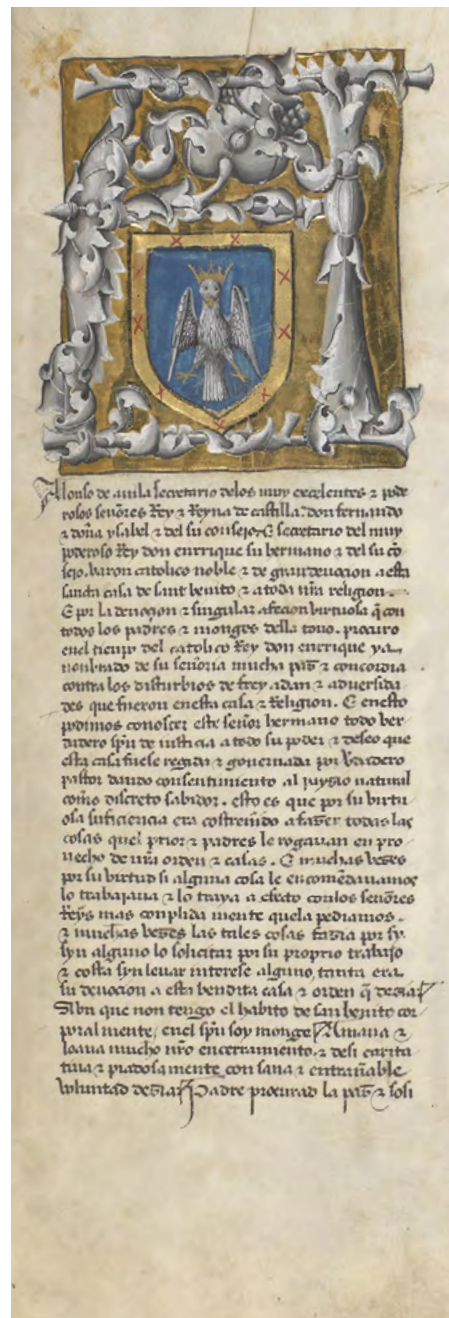 Alonso de auila secretario delos muy excelentes ⁊ pode
rosos señores Rey ⁊ Reyna de castilla. don fernando
⁊ doña ysabel ⁊ del su consejo, E secretario del muy
poderoso Rey don enrrique su hermano ⁊ del su cõ
sejo. baron catolico noble ⁊ de gran deuocion a esta
sancta casa de sant benito ⁊ a toda nr̃a religion.
E por la deuoçion ⁊ singular afecion virtuosa q̃ con
todos los padres ⁊ monges della touo. procuro
enel tienpo del catolico Rey don enrrique ya
nonbrado de su señoria mucha paz ⁊ concordia
contra los disturbios de frey adan ⁊ aduersida
des que fueron enesta casa ⁊ Religion. E enesto
podimos conosçer este señor hermano todo ber
dadero spũ de iusticia a todo su poder ⁊ deseo que
esta casa fuese regida ⁊ gouernada por verdadero
pastor dando consentimiento al juyzio natural
como discreto sabidor. esto es que por su birtu
osa suficiencia era costreñido a fazer todas las
cosas quel prior ⁊ padres le rogauan en pro
uecho de nr̃a orden ⁊ casas. E muchas bezes
por su virtud si alguna cosa le encomẽdauamos
lo trabajaua ⁊ lo traya a efecto conlos señores
Reys mas conplida mente quela pediamos.
⁊ muchas bezes las tales cosas fazia por sy
syn alguno lo solicitar por su proprio trabajo
⁊ costa syn leuar interese alguno, tanta era
su deuocion a esta bendita casa ⁊ orden q̃ dezia
Avn que non tengo el habito de san benito cor
poral mente, enel spũ soy monge Amaua ⁊
loaua mucho nr̃o encerramiento, ⁊ desi carita
tiua ⁊ piadosa mente con sana ⁊ entrañable
voluntad dezia Padre procurad la paz ⁊ sosi